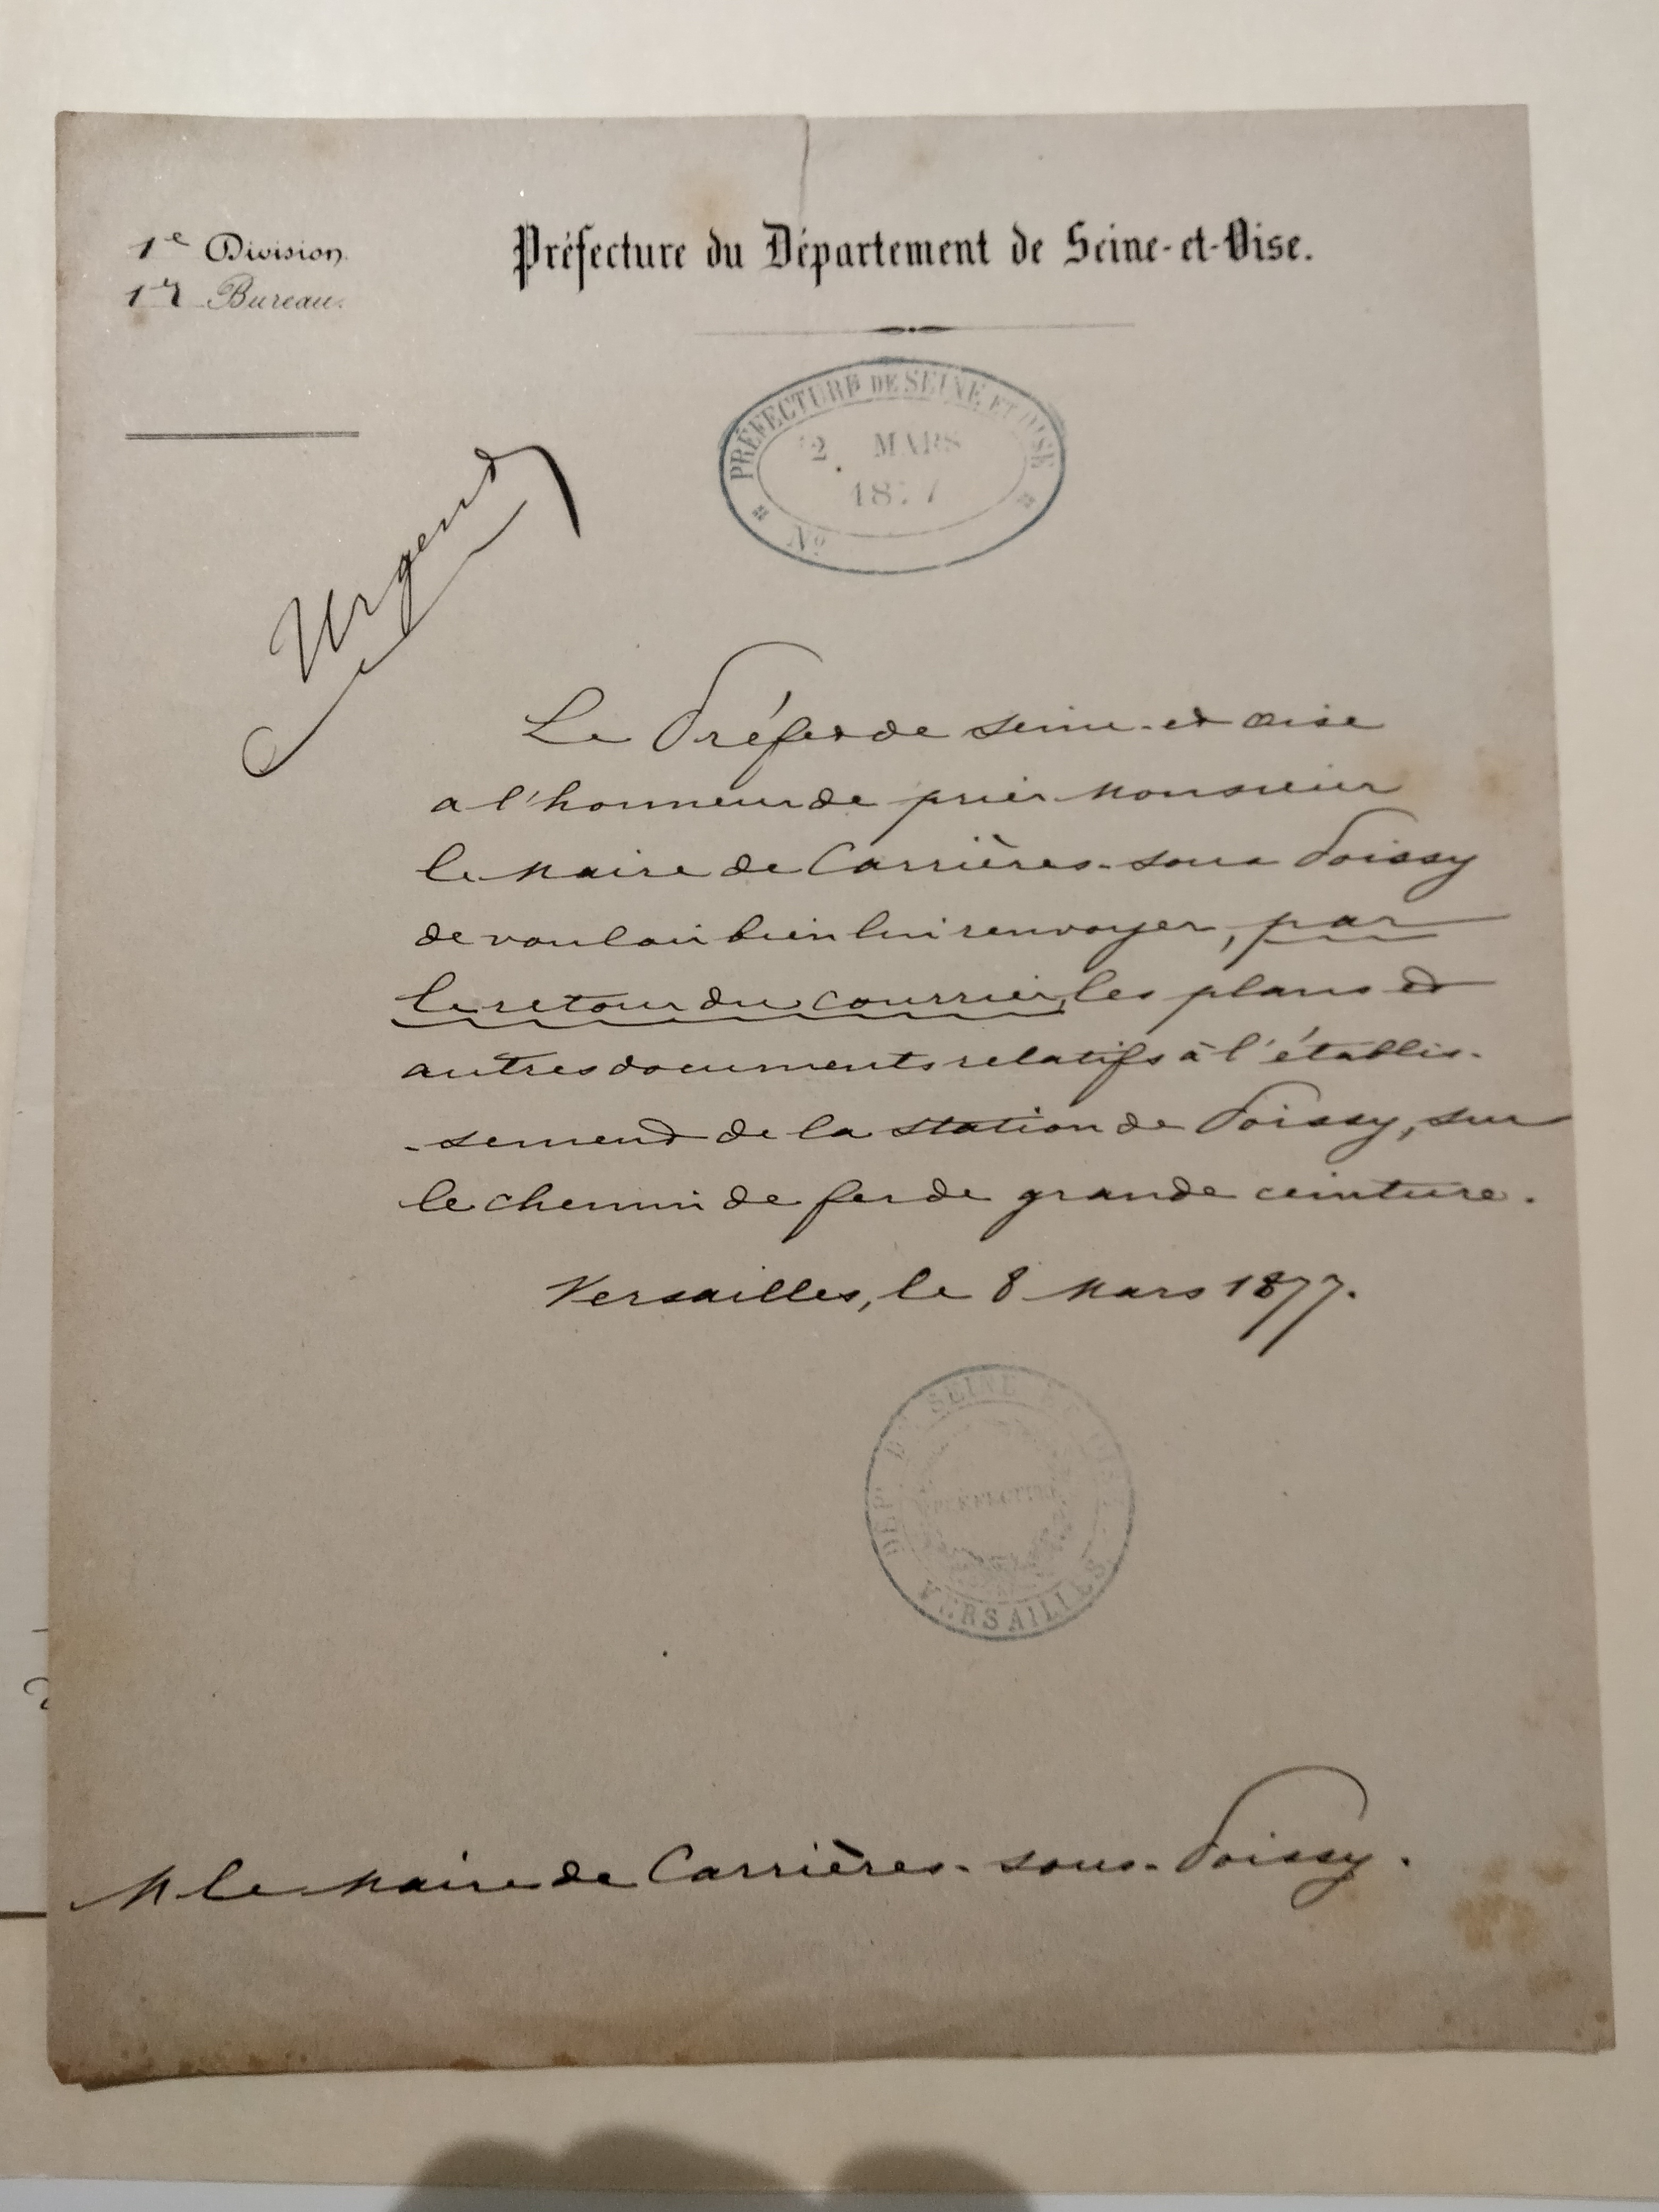 1e Division.
1er Bureau.
Préfecture du Département de Seine-et-Oise.
PRÉFECTURE DE SEINE ET OISE
2 MARS
1877
No
Urgent
Le Préfet de Seine-et-Oise
a l'honneur de prier Monsieur
le Maire de Carrières-sous Poissy
de vouloir bien lui renvoyer, par
le retour du courrier, les plans et
autres documents relatifs à l'établis-
-sement de la station de Poissy, sur
le chemin de fer de grande ceinture.
Versailles, le 8 Mars 1877.
DEP. DE SEINE ET OISE
PRÉFECTURE
VERSAILLES
M le Maire de Carrières-sous-Poissy.